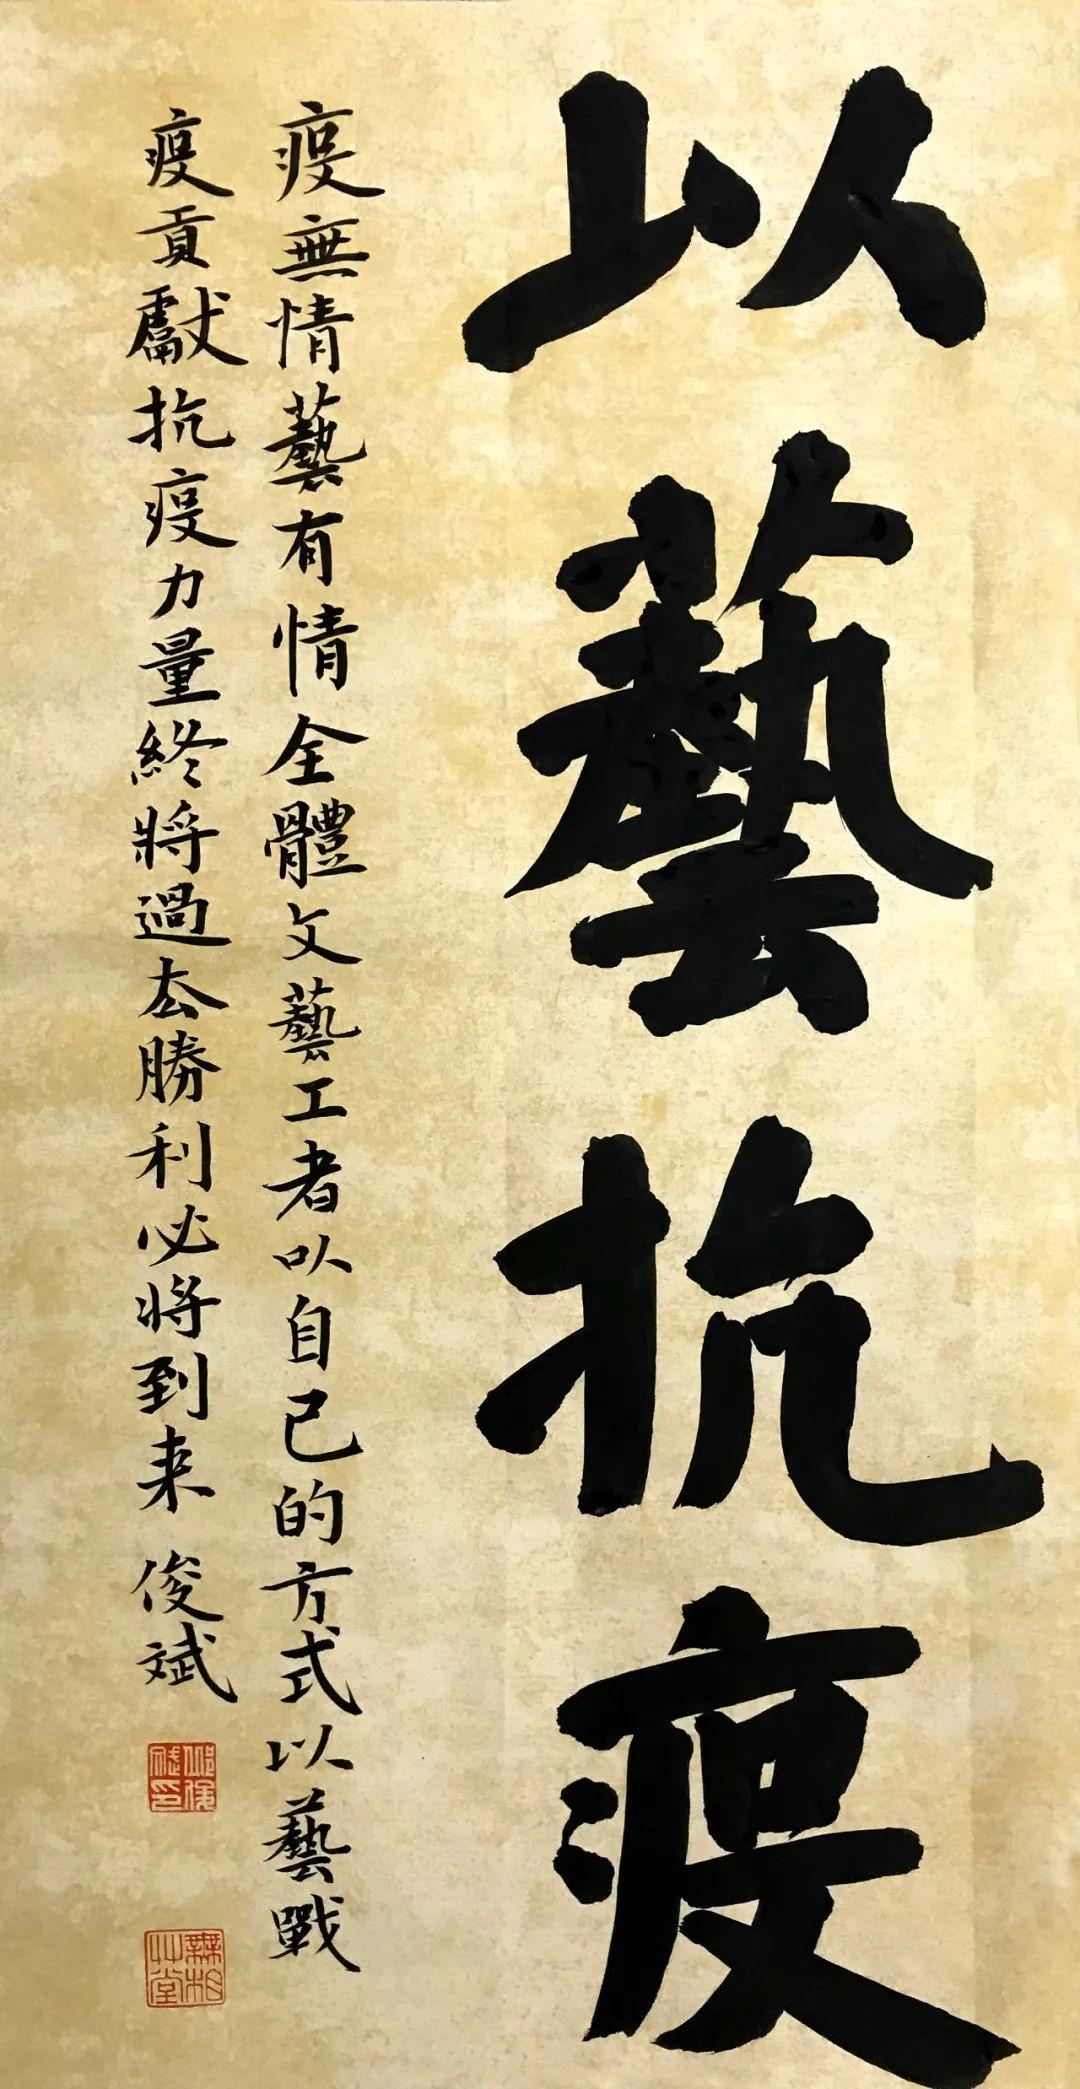 以藝抗疫
疫無情藝有情全體文藝工者以自己的方式以藝戰
疫貢獻抗疫力量終將過去勝利必將到来 俊斌
無相艸堂